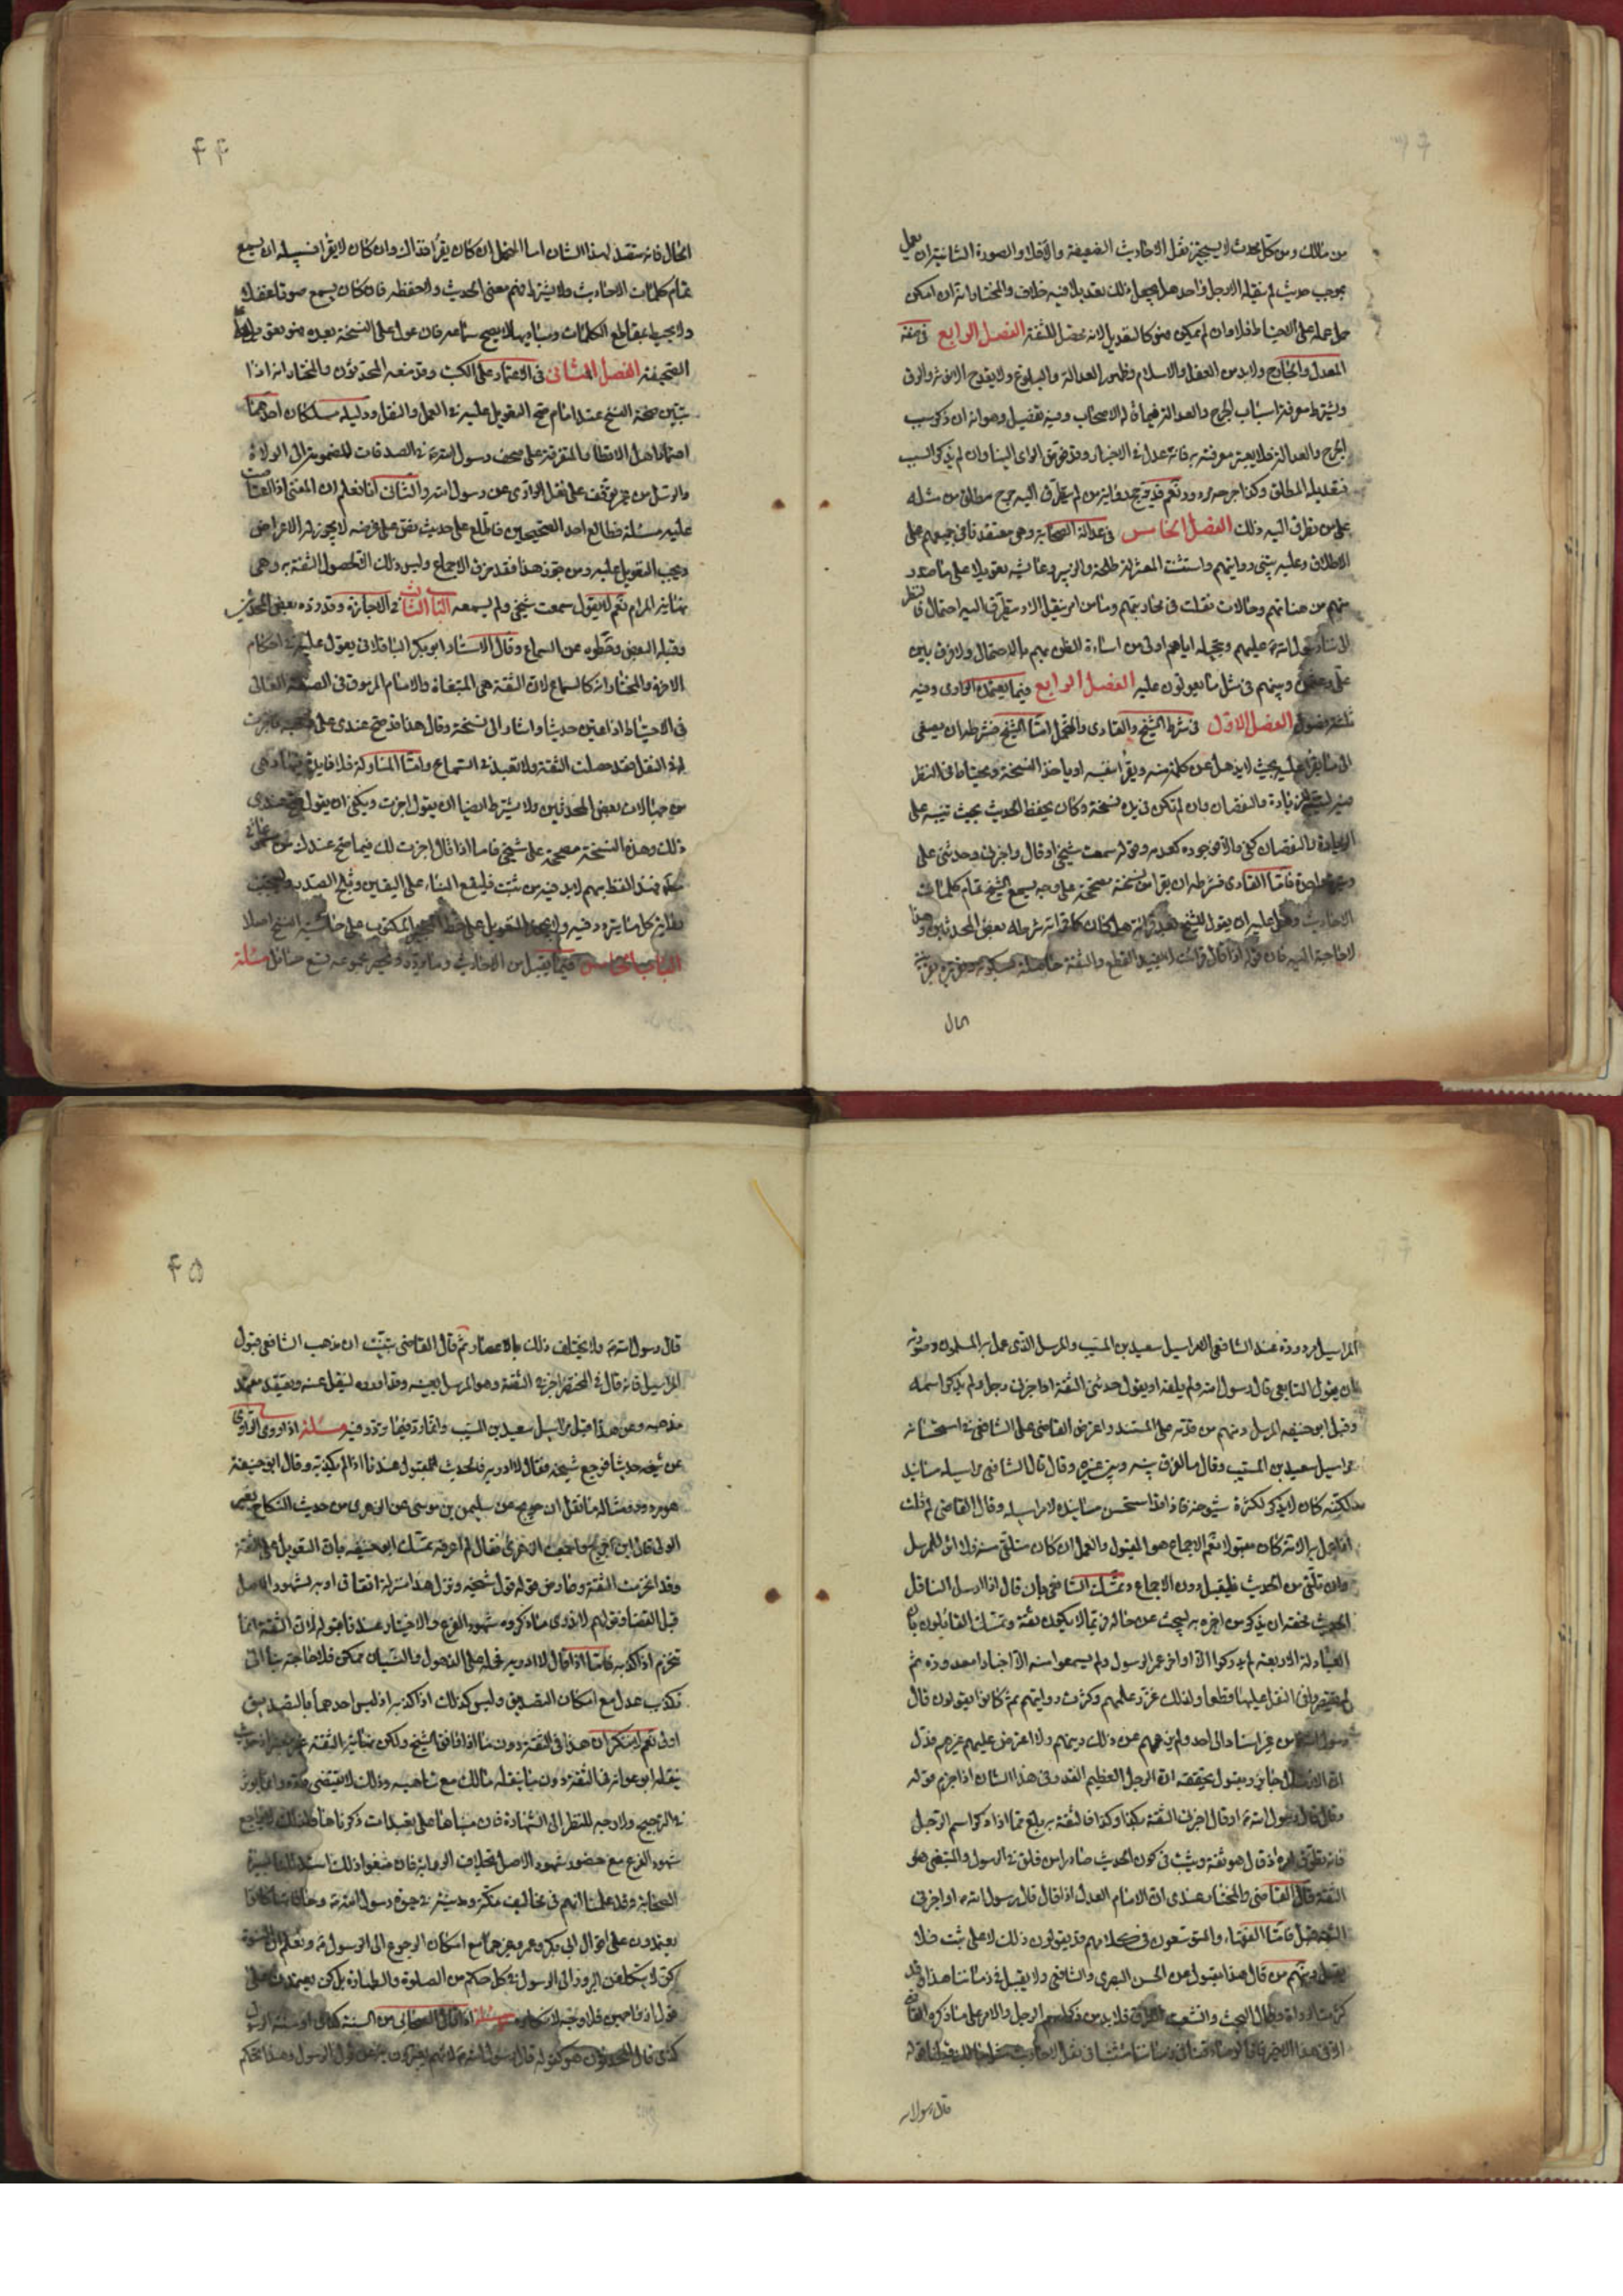 من مالك ومن كل محدث لا يستجيز نقل الاحاديث الضعيفة والا فلا والصورة الثانية ان يعمل
بموجب حديث لم ينقله الا رجل واحد هل يجعل ذلك تعديلا فيه خلاف والمختار انه ان امكن
حمل عمله على الاحتياط فلا وان لم يمكن فهو كالتعديل لانه يحصل الثقة الفصل الرابع في صفة
المعدل والجارح ولا بد من العقل والاسلام وظهور العدالة والبلوغ ولا يقدح الانوثة والرق
ويشترط معرفة اسباب الجرح والعدالة فيما قاله الاصحاب وفيه تفصيل وهو انه ان ذكر سبب
الجرح والعدالة فلا يعتبر معرفته به فانه عدل في الاخبار وقد فوض الراي الينا وان لم يذكر السبب
فتعديله المطلق وكذا جرحه مردود نعم قد يرجح
على من تطرق اليه ذلك الفصل الخامس في عدالة الصحابة وهي معتقدنا في جميعهم على
الاطلاق وعليه يبتنى روايتهم واستثنت المعتزلة طلحة والزبير وعائشة تعويلا على ما صدر
منهم من هنات وحالات نقلت في محاربتهم وما من امر ينقل الا ويتطرق اليه احتمال فالنظر
الى ثناء رسول الله عليهم وتبجيله اياهم اولى من اساءة الظن بهم بالاحتمال ولا فرق بين
علي وعثمن وبينهم في مثل ما يعولون عليه الفصل الرابع فيما يعتمده الراوي وفيه
ثلثة فصول الفصل الاول في شرط الشيخ والقاري والمتحمل اما الشيخ فشرطه ان يصغى
الى ما يقرا عليه بحيث لا يذهل عن كلمة منه ويقرا بنفسه او ياخذ النسخة ويحتاط في النظر
الزيادة والنقصان وان لم تكن في يده نسخة وكان يحفظ الحديث بحيث تنبه على
الزيادة والنقصان كفى والا فوجوده كعدمه وقوله سمعت شيخي او قال واخبرني وحدثني على
وتيرة واحدة فاما القاري فشرطه ان يقرا من نسخة مصححة على وجه يسمع الشيخ تمام كلمات
الاحاديث وهل عليه ان يقول للشيخ بعد قراته هل كان كما قراته شرطه بعض المحدثين وهذا
لا حاجة اليه فان قوله اذا قال قرات لا يفيد القطع والثقة حاصلة بسكوته
الحال
۴۴
الحال فانه يتقيد لهذا الشان اما المتحمل ان كان يقرا فذاك وان كان لا يقرا فسبيله ان يسمع
تمام كلمات الاحاديث ولا يشترط فهم معنى الحديث ولا حفظه فان كان يسمع صوتا غفلا
ولا يحيط بمقاطع الكلمات ومباديها لا يصح سماعه فان عول على النسخة بعده فهو تعويل على
الصحيفة الفصل الثاني في الاعتماد على الكتب وقد منعه المحدثون والمختار انه اذا
تبين صحة النسخ عند امام صح التعويل عليه في العمل والنقل ودليله مسلكان احدهما
اعتماد اهل الاقطار المتفرقة على صحف رسول الله في الصدقات المضمونة الى الولاة
والرسل من غير توقف على نقل الراوي عن رسول الله والثاني انا نعلم ان المفتى اذا اعتاصت
عليه مسئلة فطالع احد الصحيحين فاطلع على حديث ينص على غرضه لا يجوز له الاعراض
ويجب التعويل عليه ومن جوز هذا فقد خرق الاجماع وليس ذلك الا لحصول الثقة به وهي
نهاية المرام نعم لا يقول سمعت شيخي ولم يسمعه الباب الثالث في الاجازة وقد رده بعض المحدثين
وقبله البعض وحطوه عن السماع وقال الاستاد ابو بكر الباقلاني يعول عليه في احكام
الاخرة والمختار انه كالسماع لان الثقة هي المبتغاة والامام المرموق في الصفة العالى
في الاحتياط اذا عين حديثا واشار الى نسخة وقال هذا قد صح عندي على
له النقل فقد حصلت الثقة ولا تعبد في السماع واما المناولة فلا فايدة فيها وهي
من جهالات بعض المحدثين ولا يشترط ايضا ان يقول اجزت ويكفي ان يقول صح عندي
ذلك وهذه النسخة مصححة على شيخي فاما اذا قال اجزت لك فيما صح عندك من
فهذا القظ مبهم لا بد فيه من تثبت فليقع البناء على اليقين وثلج الصدر
نهاية كل ما يتردد فيه ولا يجوز التعويل على خط المكتوب على حاشية النسخ اصلا
الباب الخامس فيما يقبل من الاحاديث وما يرد وينحصر مجموعه تسع مسائل مسئلة
المراسيل مردودة عند الشافعي الا مراسيل سعيد بن المسيب والمرسل الذي عمل به المسلمون وصورته
ان يقول التابعي قال رسول الله ولم يلقه او يقول حدثني الثقة او اخبرني رجل ولم يذكر اسمه
وقبل ابو حنيفة المرسل ومنهم من قدمه على المسند واعترض القاضي على الشافعي في استحسانه
مراسيل سعيد بن المسيب وقال ما الفرق بينه وبين غيره وقال قال الشافعي مراسيله مسانيد
لكنه كان لا يذكر لكثرة شيوخه فاذا قد استحسن مسانيده لا مراسيله وقال القاضي لم قلت
اذا عمل به الامة كان مقبولا نعم الاجماع هو المقبول والعمل ان كان يتلقى منه فلا اثر للمرسل
وان تلقى من الحديث فليقبل دون الاجماع وتمسك الشافعي بان قال اذا ارسل الناقل
الحديث فحقه ان يذكر من اخبره به ليبحث عن حاله فربما لا يكون ثقة وتمسك القائلون بان
العبادلة الاربعة لم يدركوا الا اواخر عمر الرسول ولم يسمعوا منه الا اخبارا معدودة ثم
لم يقتصروا في النقل عليها قطعا ولذلك غزر علمهم وكثرت روايتهم ثم كانوا يقولون قال
رسول الله من غير اسناد الى احد ولم ينههم عن ذلك دينهم ولا اعترض عليهم غيرهم فدل
ان الارسال جايز ومقبول يحققه ان الرجل العظيم القدر في هذا الشان اذا جزم قوله
وقال قال رسول الله او قال اخبرني الثقة بكذا وكذا فالثقة به يبلغ مما اذا ذكر اسم الرجل
هو ثقة وثبت في كون الحديث صادرا من فلق في الرسول والمبتغى هو
الثقة قال القاضي والمختار عندي ان الامام العدل اذا قال قال رسول الله او اخبرني
الثقة قبل فاما الفقهاء والمتوسعون في كلامهم قد يقولون ذلك لا على ثبت فلا
يقبل ومنهم من قال هذا مقبول من الحسن البصري والشافعي ولا يقبل في زماننا هذا وقد
كثرت الرواة وطال البحث وتشعب الطرق فلا بد من ذكر اسم الرجل والامر على ما ذكره القاضي
قال رسول الله
۴۵
قال رسول الله ولا يختلف ذلك بالاعصار ثم قال القاضي تبينت ان مذهب الشافعي قبول
المراسيل فانه قال في المختصر اخبرني الثقة وهو المرسل بعينه وقد اورده لينقل عنه ويعتقد معتمد
مذهبه وعن هذا قبل مراسيل سعيد بن المسيب وانما رد فيما تردد فيه مسئلة اذا روى الراوي
عن شيخه حديثا فرجع شيخه فقال لا ادريه فالحديث مقبول عندنا اذا لم يكذبه وقال ابو حنيفة
هو مردود مثاله ما نقل ابن جريج عن سليمن بن موسى عن الزهري من حديث النكاح بغير
الولي قال ابن جريج راجعت الزهري فقال لم اعرفه تمسك ابو حنيفة بان التعويل على الثقة
وقد انخرمت الثقة وعارض قوله قول شيخه ونزل هذا منزلة
قبل القضاء بقولهم لا ندري ما ذكروه شهود الفرع والاخبار عندنا مقبولة لان الثقة انما
تنخرم اذا كذبه فاما اذا قال لا ادريه فحمله على الذهول والنسيان ممكن فلا حاجة بنا الى
تكذيب عدل مع امكان التصديق وليس كذلك اذا كذبه اذ ليس احدهما بالتصديق
اولى نعم لا ينكر ان هذا في الثقة دون ما اذا وافقه الشيخ ولكن نهاية الثقة
ينقله ابو عوانة في الثقة دون ما ينقله مالك مع شاهد
في الترجيح ولا وجه للنظر الى الشهادة فان مبناها على تعبدات ذكرناها
شهود الفرع مع حضور شهود الاصل بخلاف الرواية فان منعوا ذلك استدللنا بسيرة
الصحابة وقد علمنا انهم في مخاليف مكة ومدينة في حيوة رسول الله
يعتمدون على اقوال ابي بكر وعمر وغيرهما مع امكان الرجوع الى الرسول ونعلم ان النسوة
كن لا يتكلفن البروز الى الرسول في كل حكم من الصلوة والطهارة بل كن يعتمدن على
قول ازواجهن فلا وجه لانكاره مسئلة اذا قال الصحابي من السنة كذا
كذا قال المحدثون هو كقوله قال رسول الله لانهم وهذا تحكم